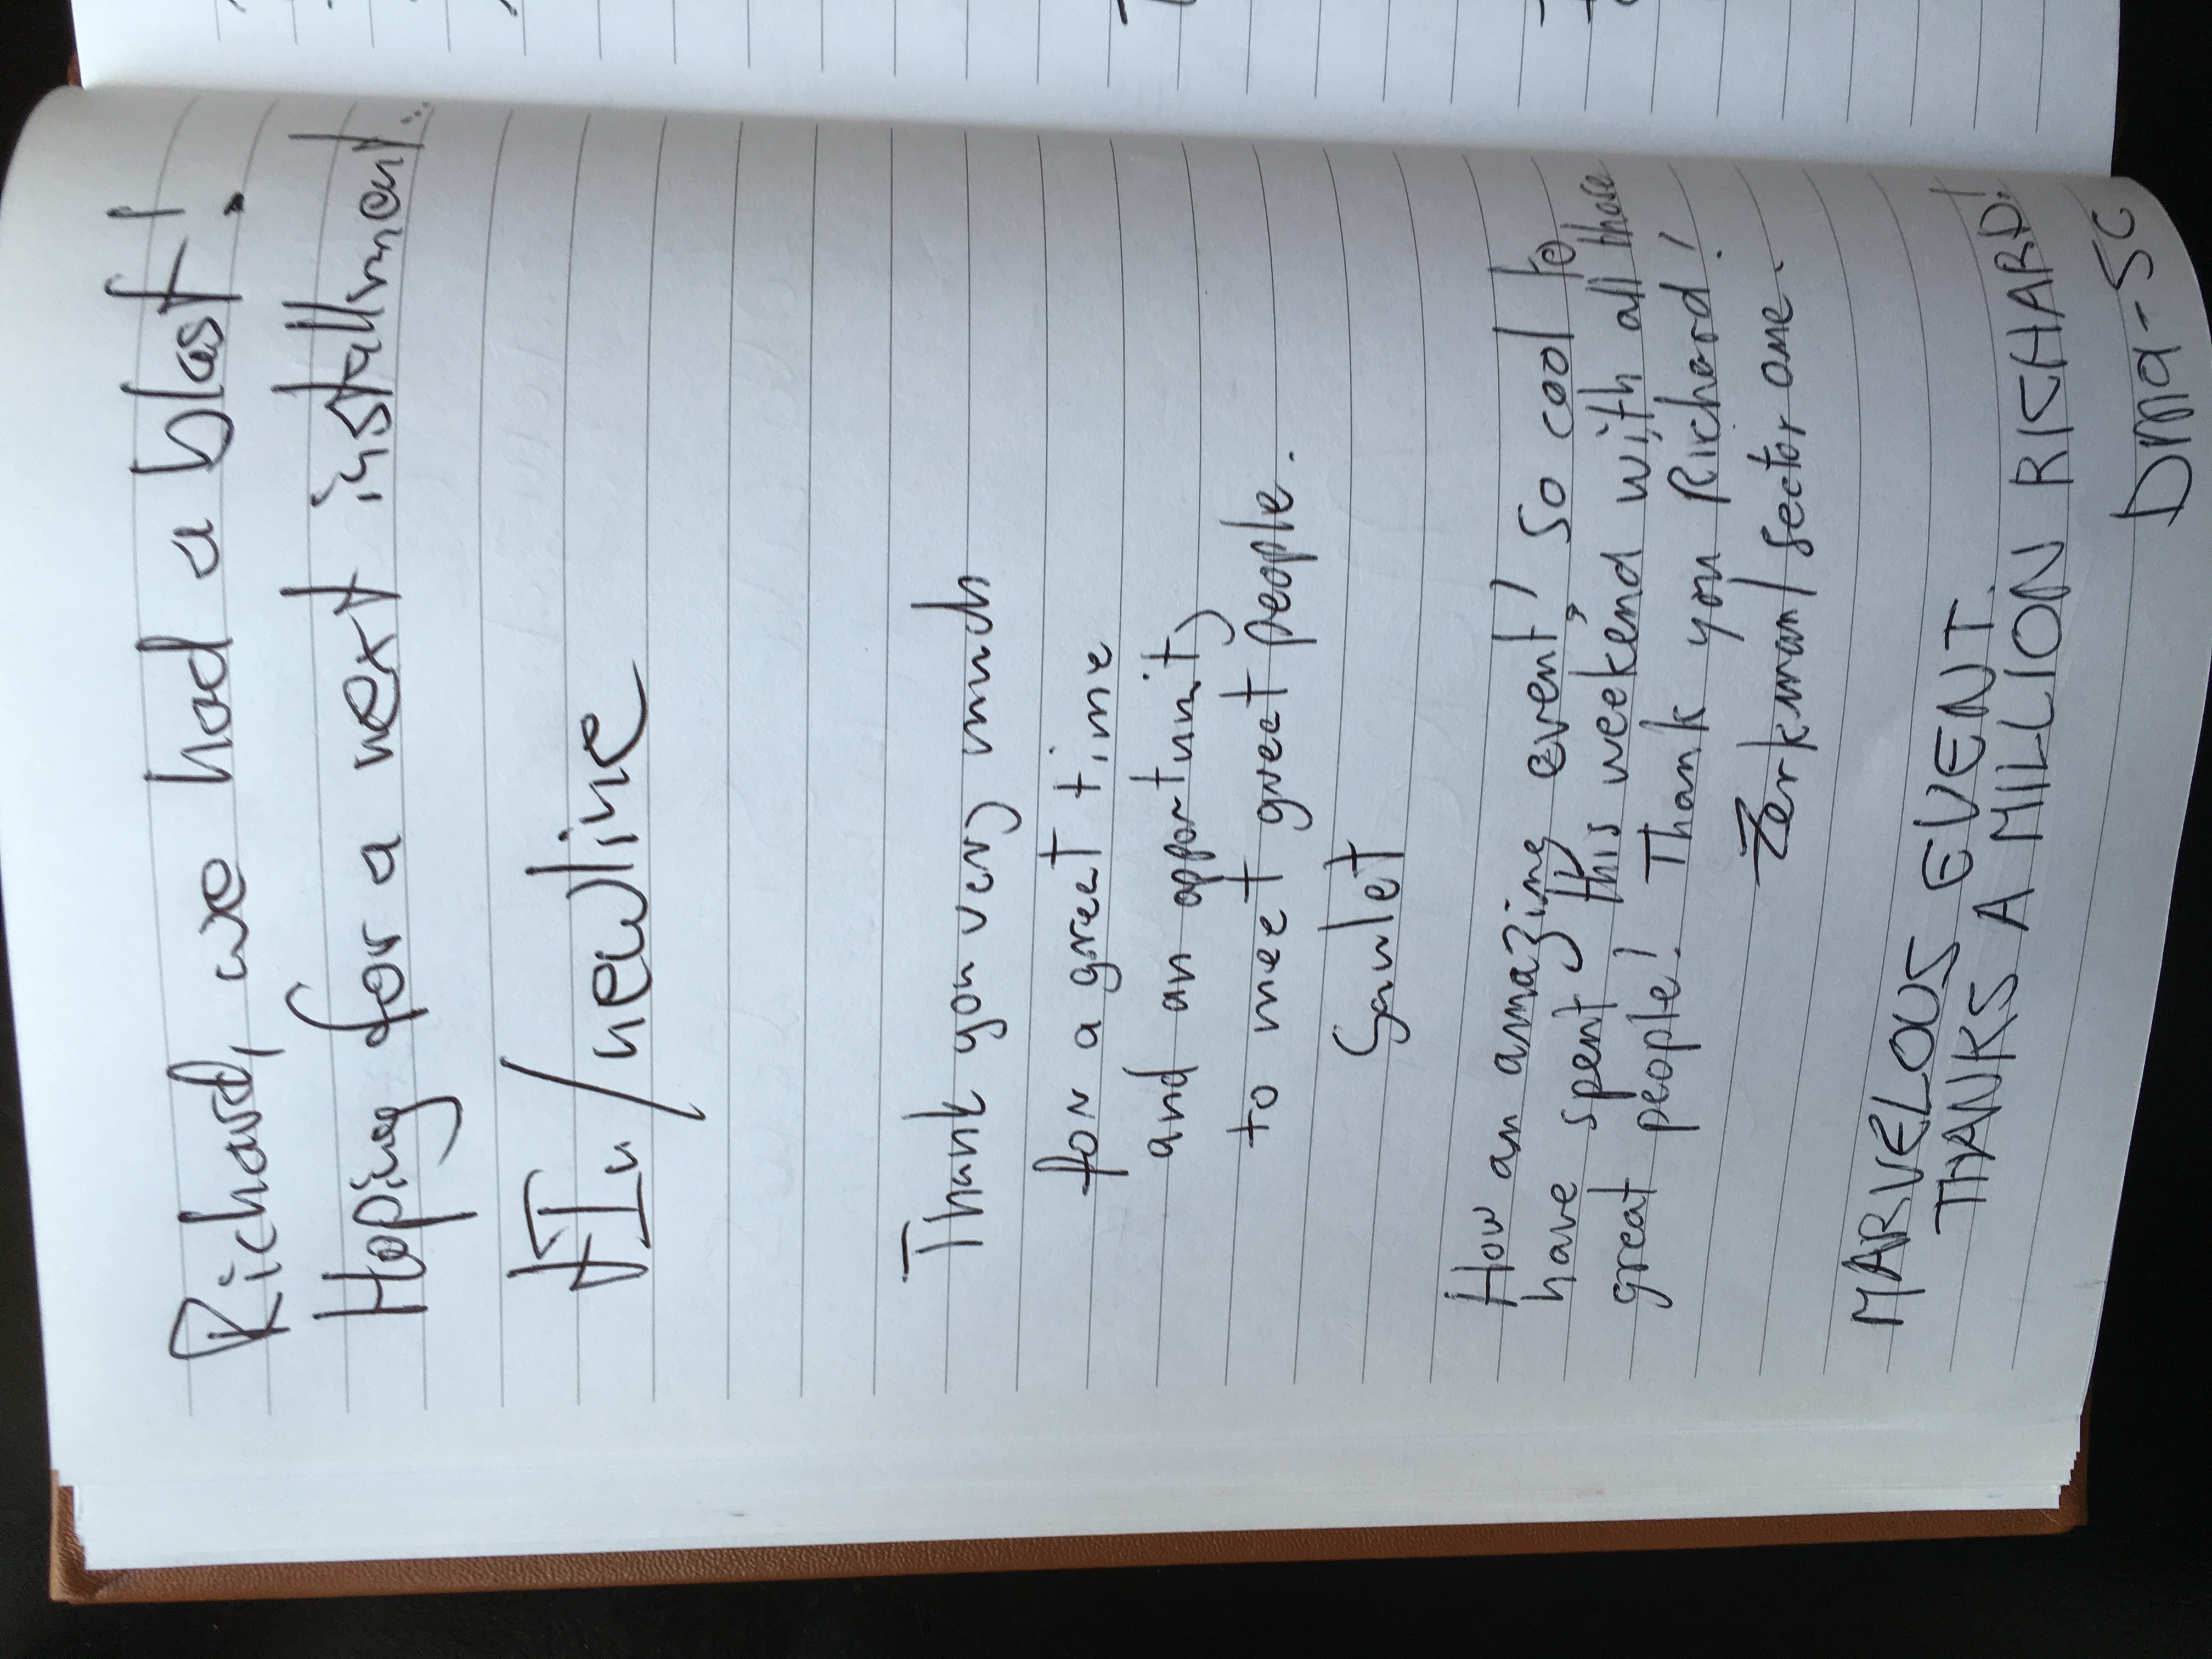 Richard, we had a blast!
Hoping for a next installment...
/newline
Thank you very much
for a great time
and an opportunity
to meet great people.
How an amazing event! So cool to
have spent this weekend with all those
great people! Thank you Richard!
Zerkman/sector one.
MARVELOUS EVENT.
THANKS A MILLION RICHARD!
Dma-Sc